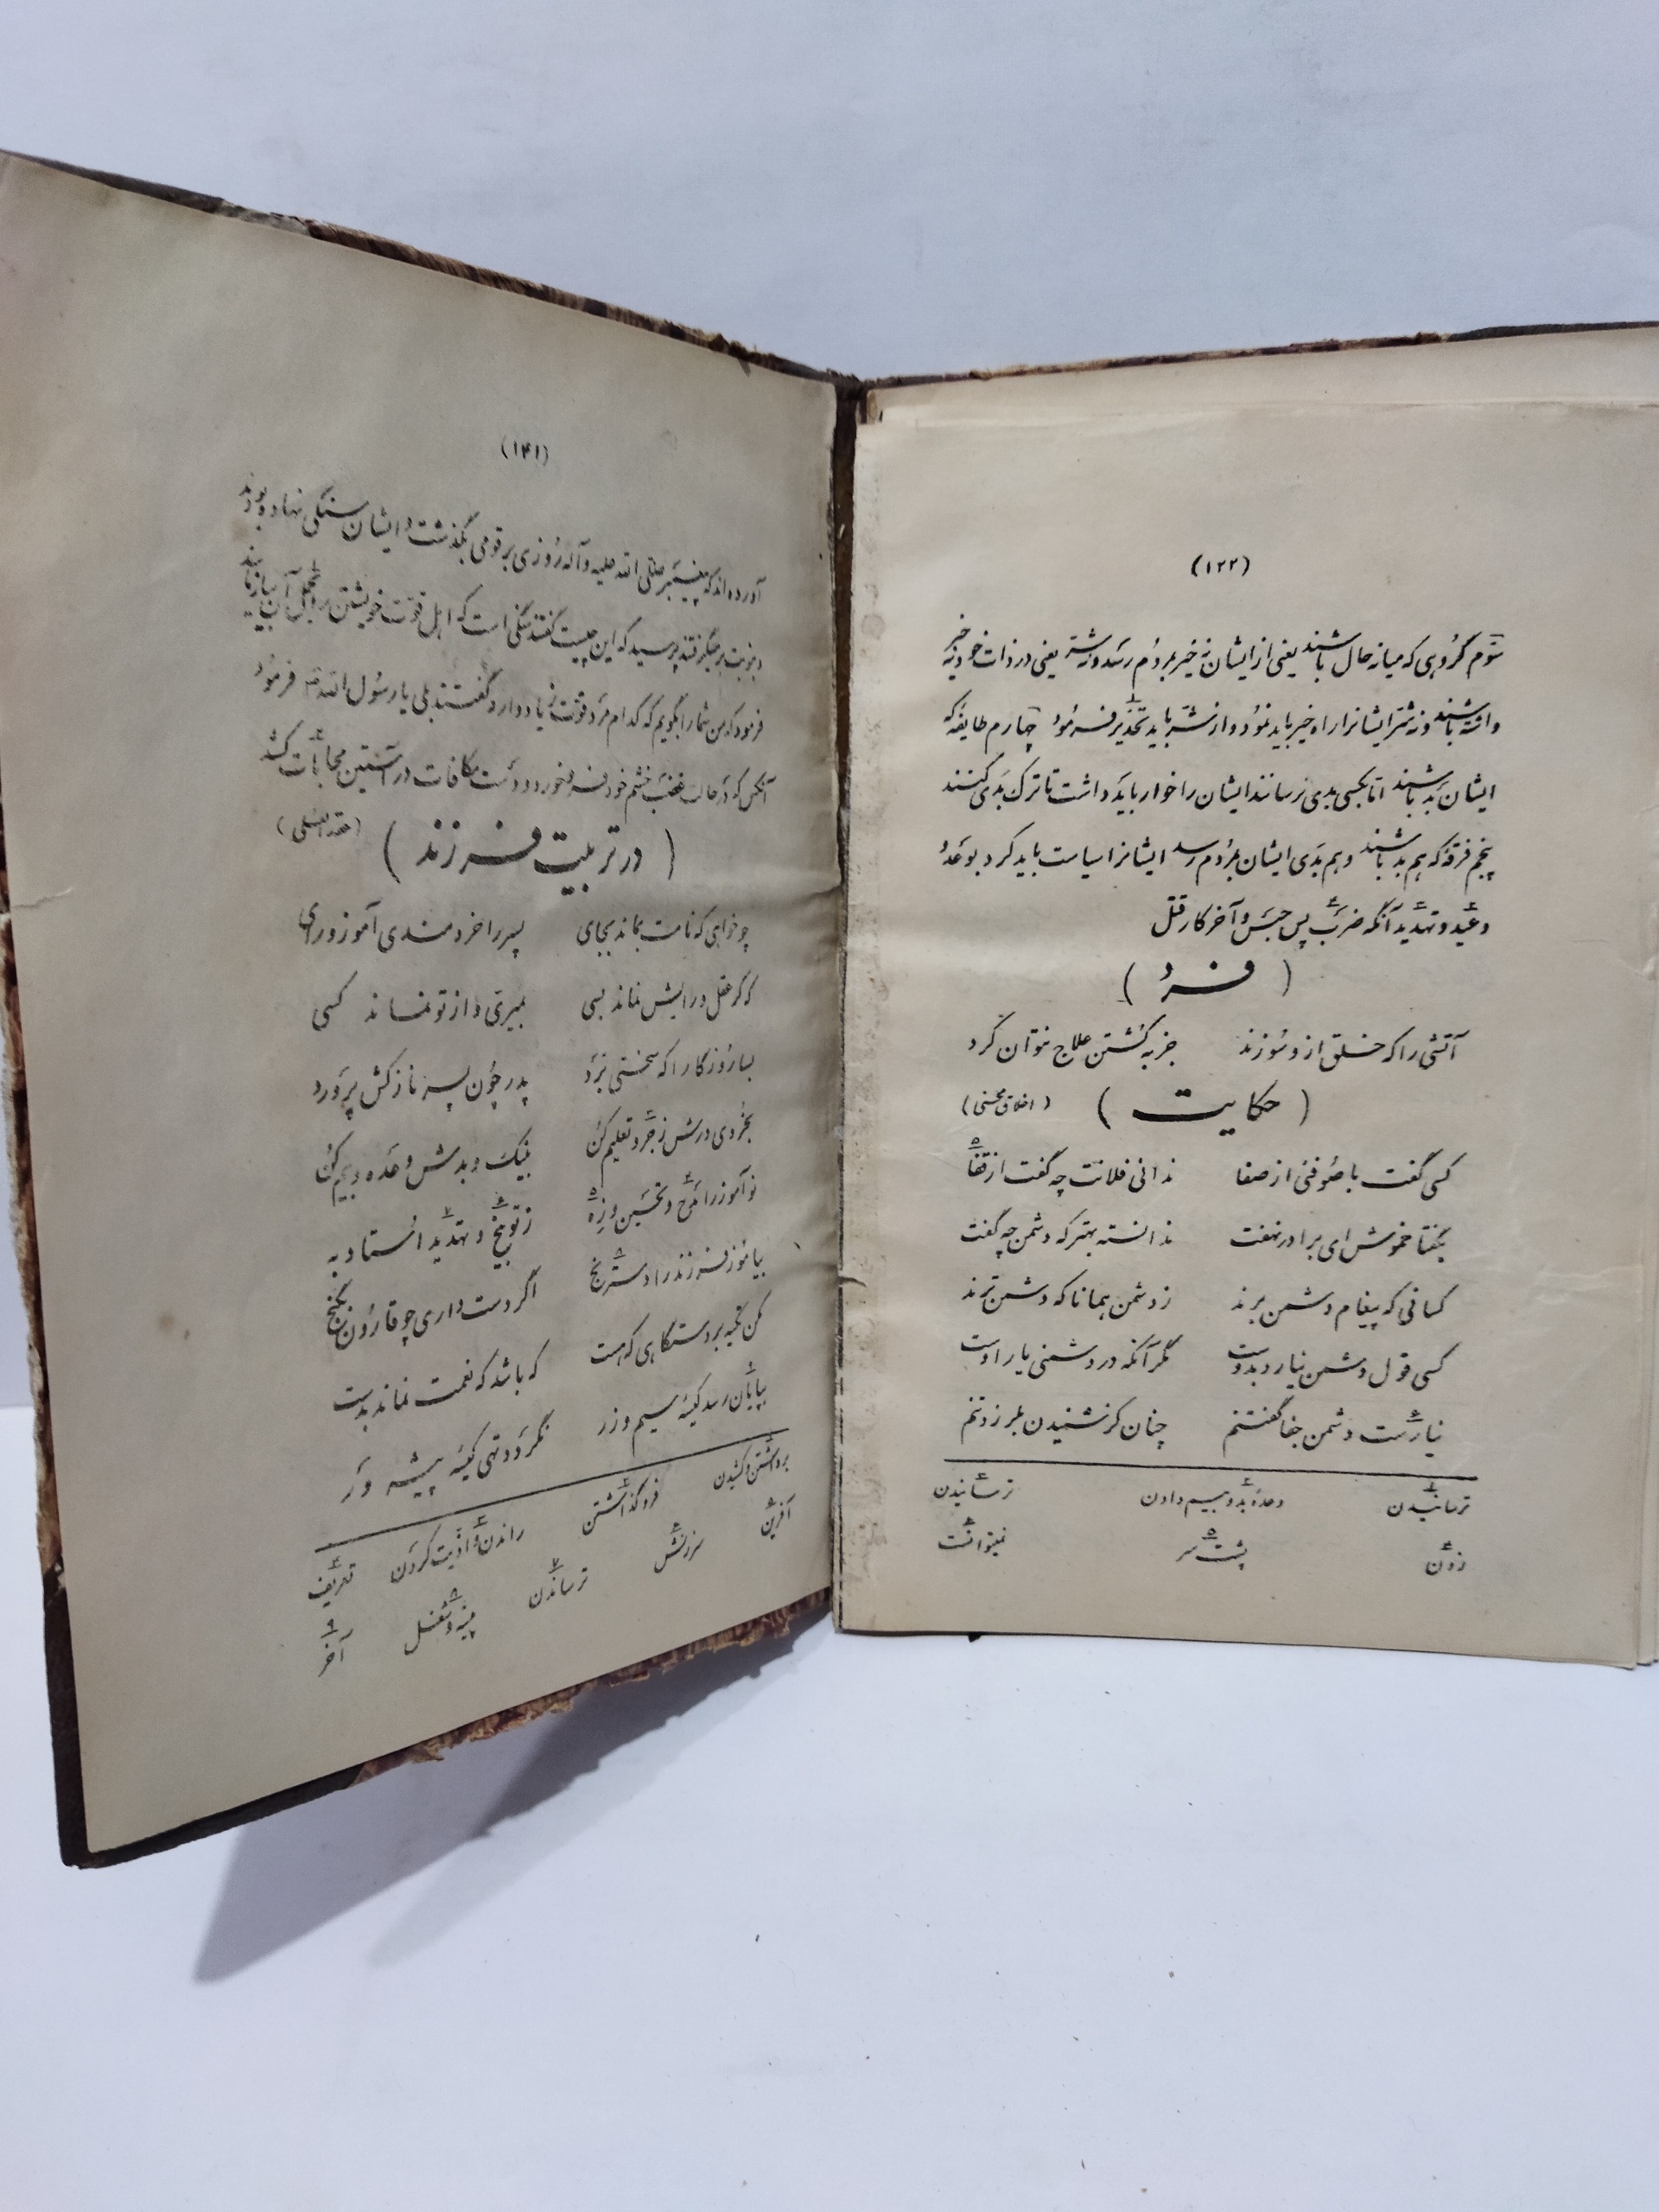 (۱۲۲)
سوّم گروهی که میانه حال باشند یعنی از ایشان نه خیر بمردم رسد و نه شر یعنی در ذات خود نه خیر
داشته باشند و نه شر ایشانرا راه خیر باید نمود و از شر باید تحذیر فرمود چهارم طایفهٔ که
ایشان بد باشند اما بکسی بدی نرسانند ایشان را خوار باید داشت تا ترک بدی کنند
پنجم فرقهٔ که هم بد باشند و هم بدی ایشان بمردم رسد ایشانرا سیاست باید کرد بوعدهٔ
وعید و تهدید آنگه ضرب پس حبس و آخر کار قتل
( فرد )
آتشی را که خلق ازو سوزند جز به کشتن علاج نتوان کرد
( حکایت ) (اخلاق محسنی)
کسی گفت با صوفئی از صفا ندانی فلانت چه گفت از قفا
بگفتا خموش ای برادر نهفت ندانسته بهتر که دشمن چه گفت
کسانی که پیغام دشمن برند ز دشمن همانا که دشمن ترند
کسی قول دشمن نیارد بدوست مگر آنکه در دشمنی یار اوست
نیارست دشمن جفا گفتنم چنان کز شنیدن بلرزد تنم
ترسانیدن وعدهٔ بد و بیم دادن ترسانیدن
زدن پشت سر نمیتوانست
(۱۴۱)
آورده‌اند که پیغمبر صلی الله علیه و آله روزی بر قومی بگذشت و ایشان سنگی نهاده بودند
و بنوبت برمیگرفتند پرسید که این چیست گفتند سنگی است که اهل قوت خویشتن را بحمل آن بیازمایند
فرمود که من شما را بگویم که کدام مرد قوت زیاد دارد گفتند بلی یا رسول الله فرمود
آنکس که در حالت غضب خشم خود فرو خورد و دست مکافات در آستین محابات کشد
( در تربیت فرزند )
چو خواهی که نامت بماند بجای پسر را خردمندی آموز و رای
که گر عقل و رایش نماند بسی بمیری و از تو نماند کسی
بسا روزگارا که سختی برد پدر چون پسر نازکش پرورد
بخردی درش زجر و تعلیم کن بنیک و بدش وعده و بیم کن
نوآموز را مدح و تحسین و زه ز توبیخ و تهدید استاد به
بیاموز فرزند را دسترنج اگر دست داری چو قارون بگنج
مکن تکیه بر دستگاهی که هست که باشد که نعمت نماند بدست
بپایان رسد کیسه سیم و زر نگردد تهی کیسه پیشه ور
برداشتن و کشیدن فروگذاشتن راندن و اذیت کردن تعریف
آفرین سرزنش ترساندن پیشه و شغل آخر